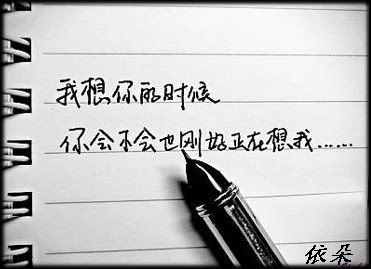 我想你的时候
你会不会也刚好正在想我……
依朵